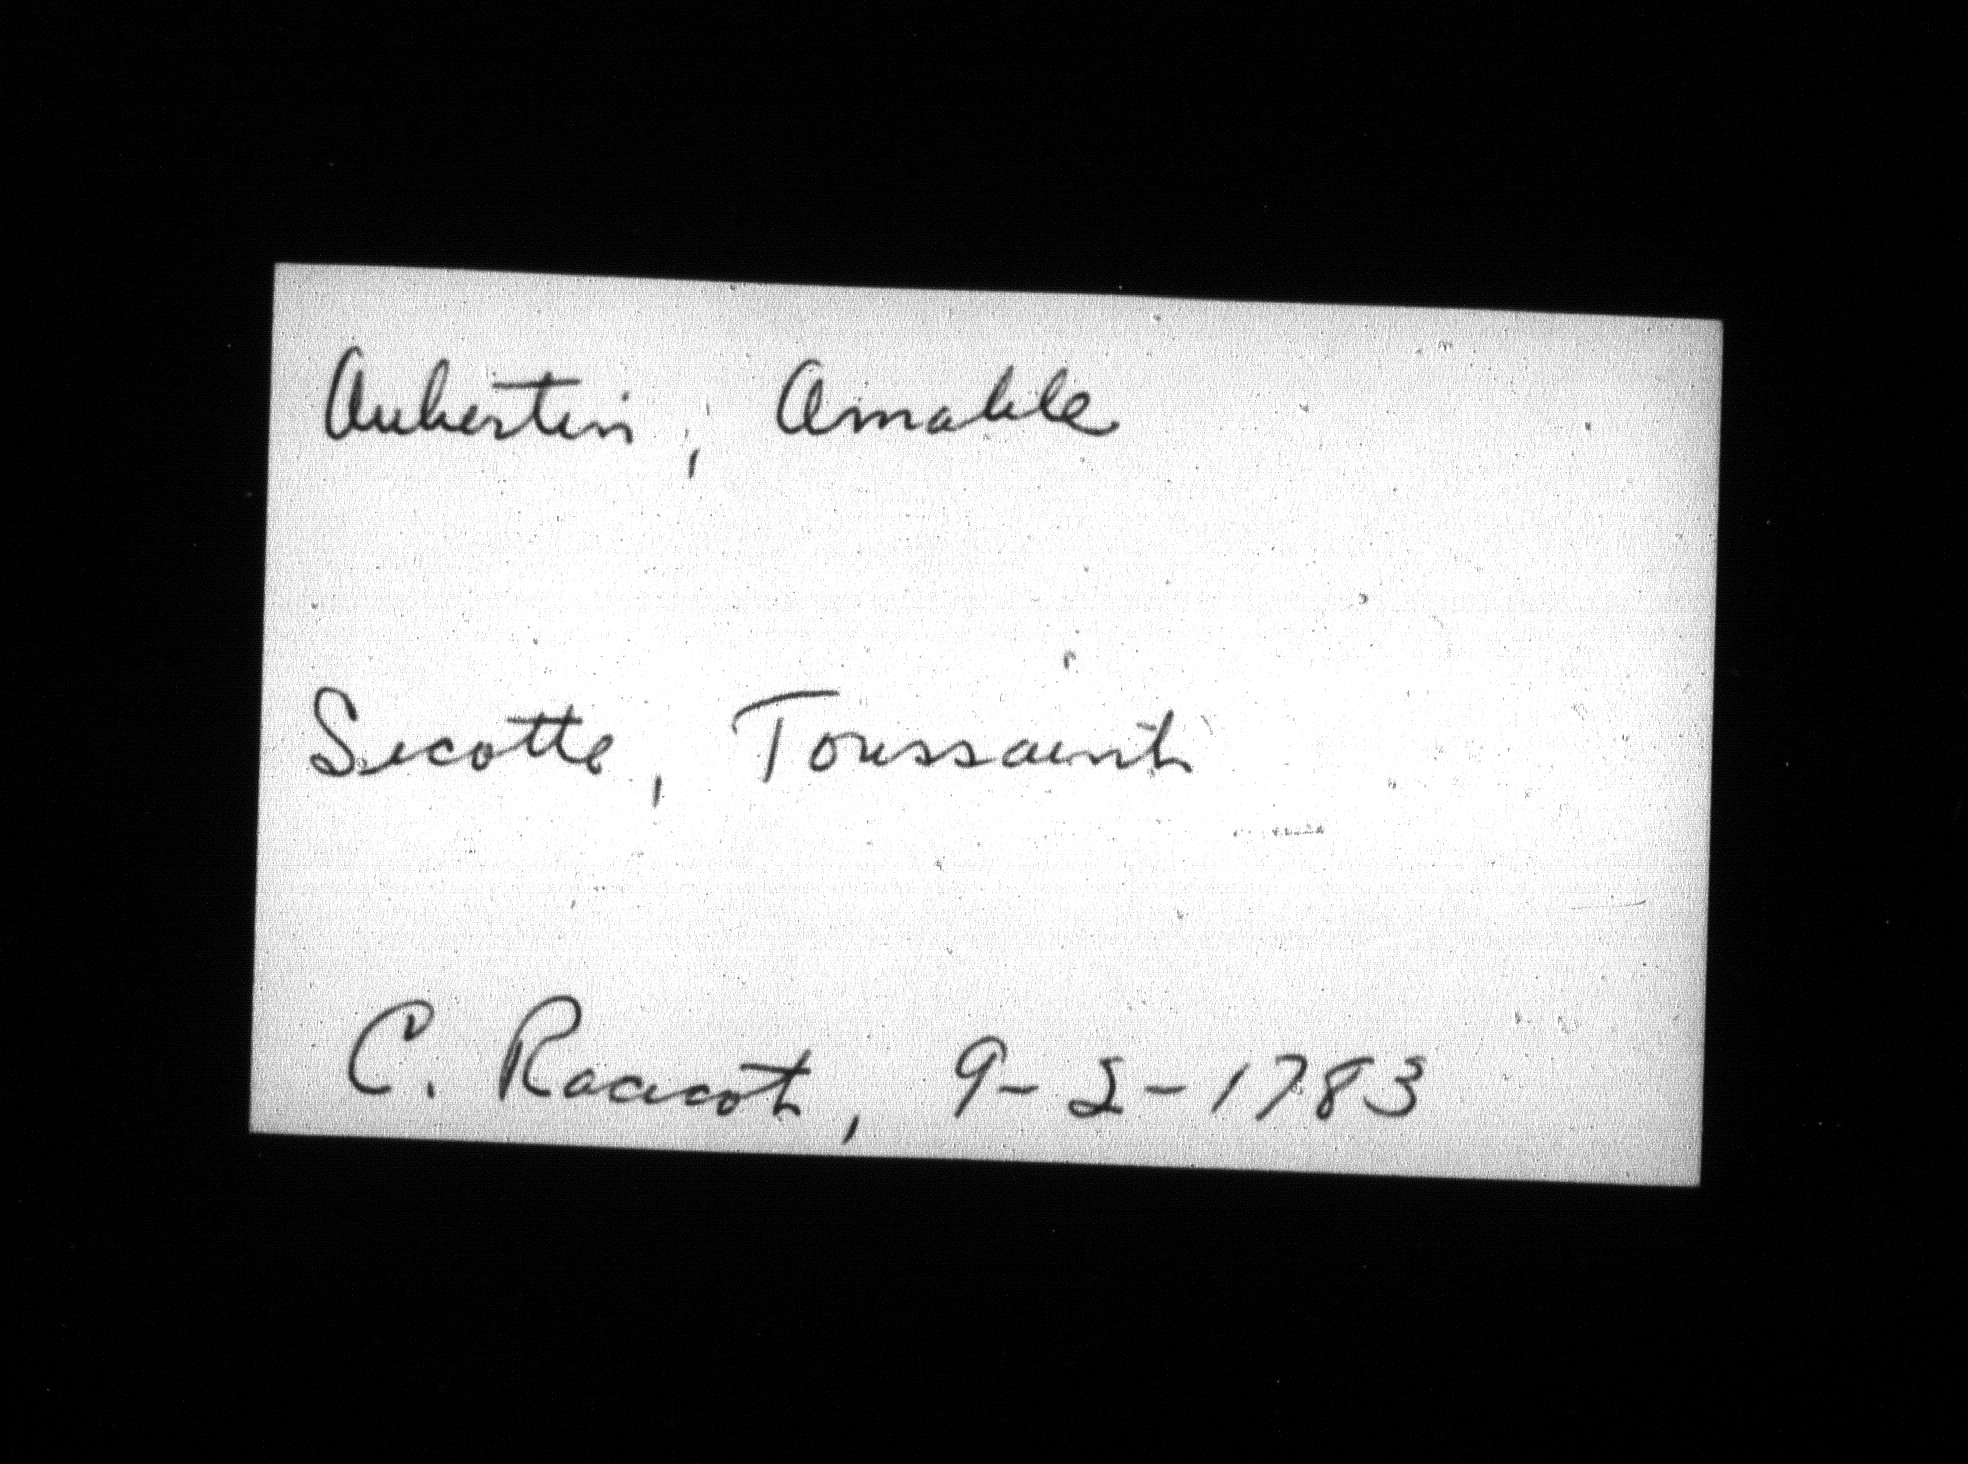 Aubertin, Amable
Sicotte, Toussaint
C. Racicot, 9-2-1783